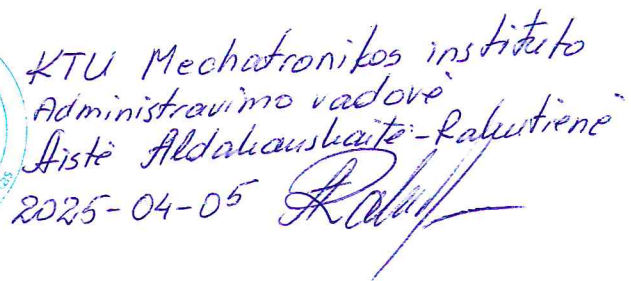 KTU Mechatronikos instituto
Administravimo vadovė
Aistė Aldakauskaitė-Rakutienė
2025-04-05